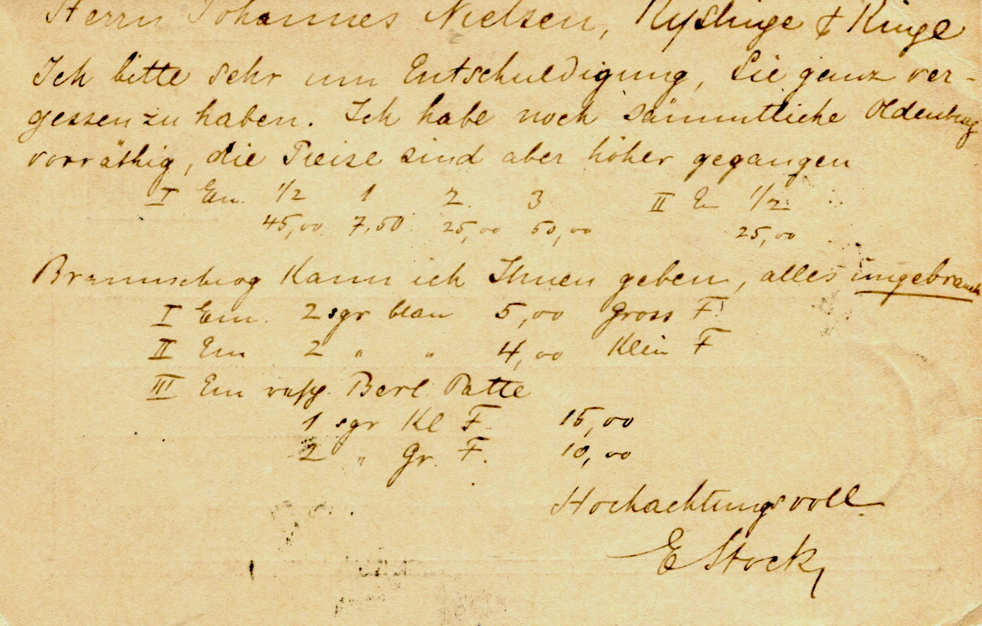 Herrn Johannes Nielsen, Ryslinge & Ringe
Ich bitte sehr um Entschuldigung, Sie ganz ver-
gessen zu haben. Ich habe noch sämmtliche Oldenburg
vorräthig, die Preise sind aber höher gegangen
I Em. 1/2 1 2 3 II Em 1/2
45,00 7,50 25,00 50,00 25,00
Braunschwg kann ich Ihnen geben, alles ungebrauch
I Em. 2 sgr blau 5,00 Gross F
II Em 2 " " 4,00 Klein F
III Em Berl. Patte
1 sgr Kl F. 15,00
2 " Gr. F. 10,00
Hochachtungsvoll
E Stock,